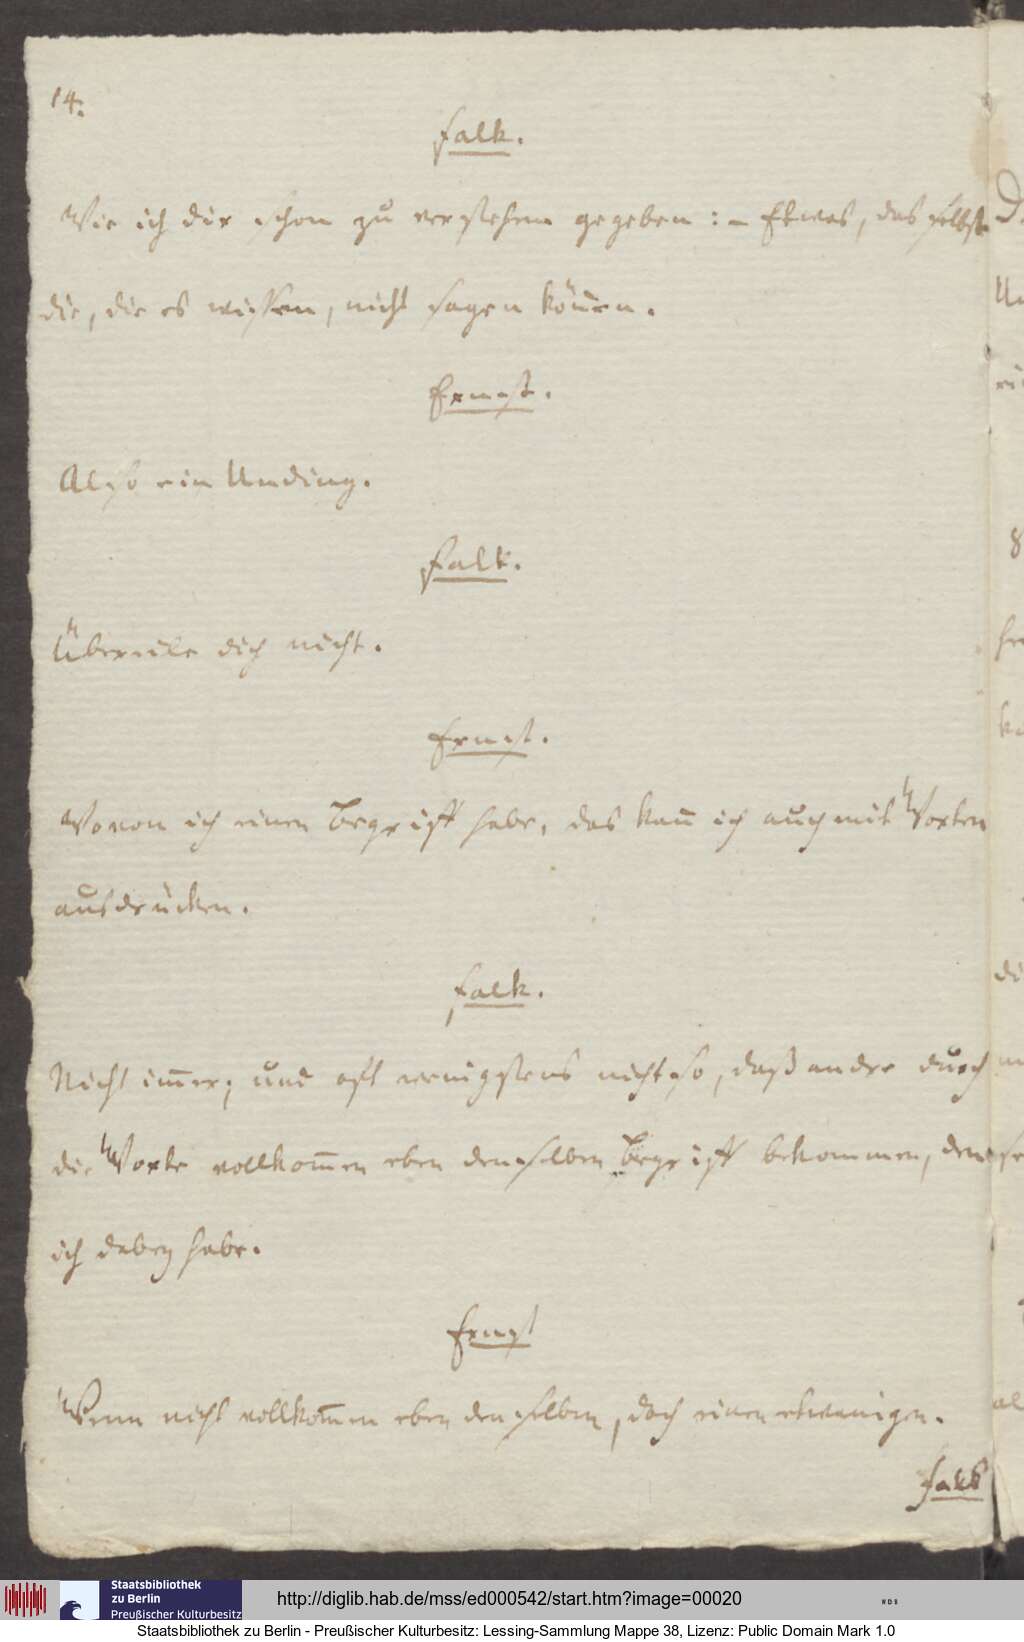 14.
Falk.
Wie ich dir schon zu verstehen gegeben: – Etwas, das selbst
die, die es wissen, nicht sagen können.
Ernst.
Also ein Unding.
Falk.
Übereile dich nicht.
Ernst.
Wovon ich einen Begriff habe, das kan̄ ich auch mit Worten
ausdrücken.
Falk.
Nicht im̄er; und oft wenigstens nicht so, daß andre durch
die Worte vollkom̄en eben denselben Begriff bekommen, den
ich dabey habe.
Ernst
Wenn nicht vollkom̄en eben denselben, doch einen etwanigen.
Falk
Staatsbibliothek
zu Berlin
Preußischer Kulturbesitz
http://diglib.hab.de/mss/ed000542/start.htm?image=00020
WDB
Staatsbibliothek zu Berlin - Preußischer Kulturbesitz: Lessing-Sammlung Mappe 38, Lizenz: Public Domain Mark 1.0